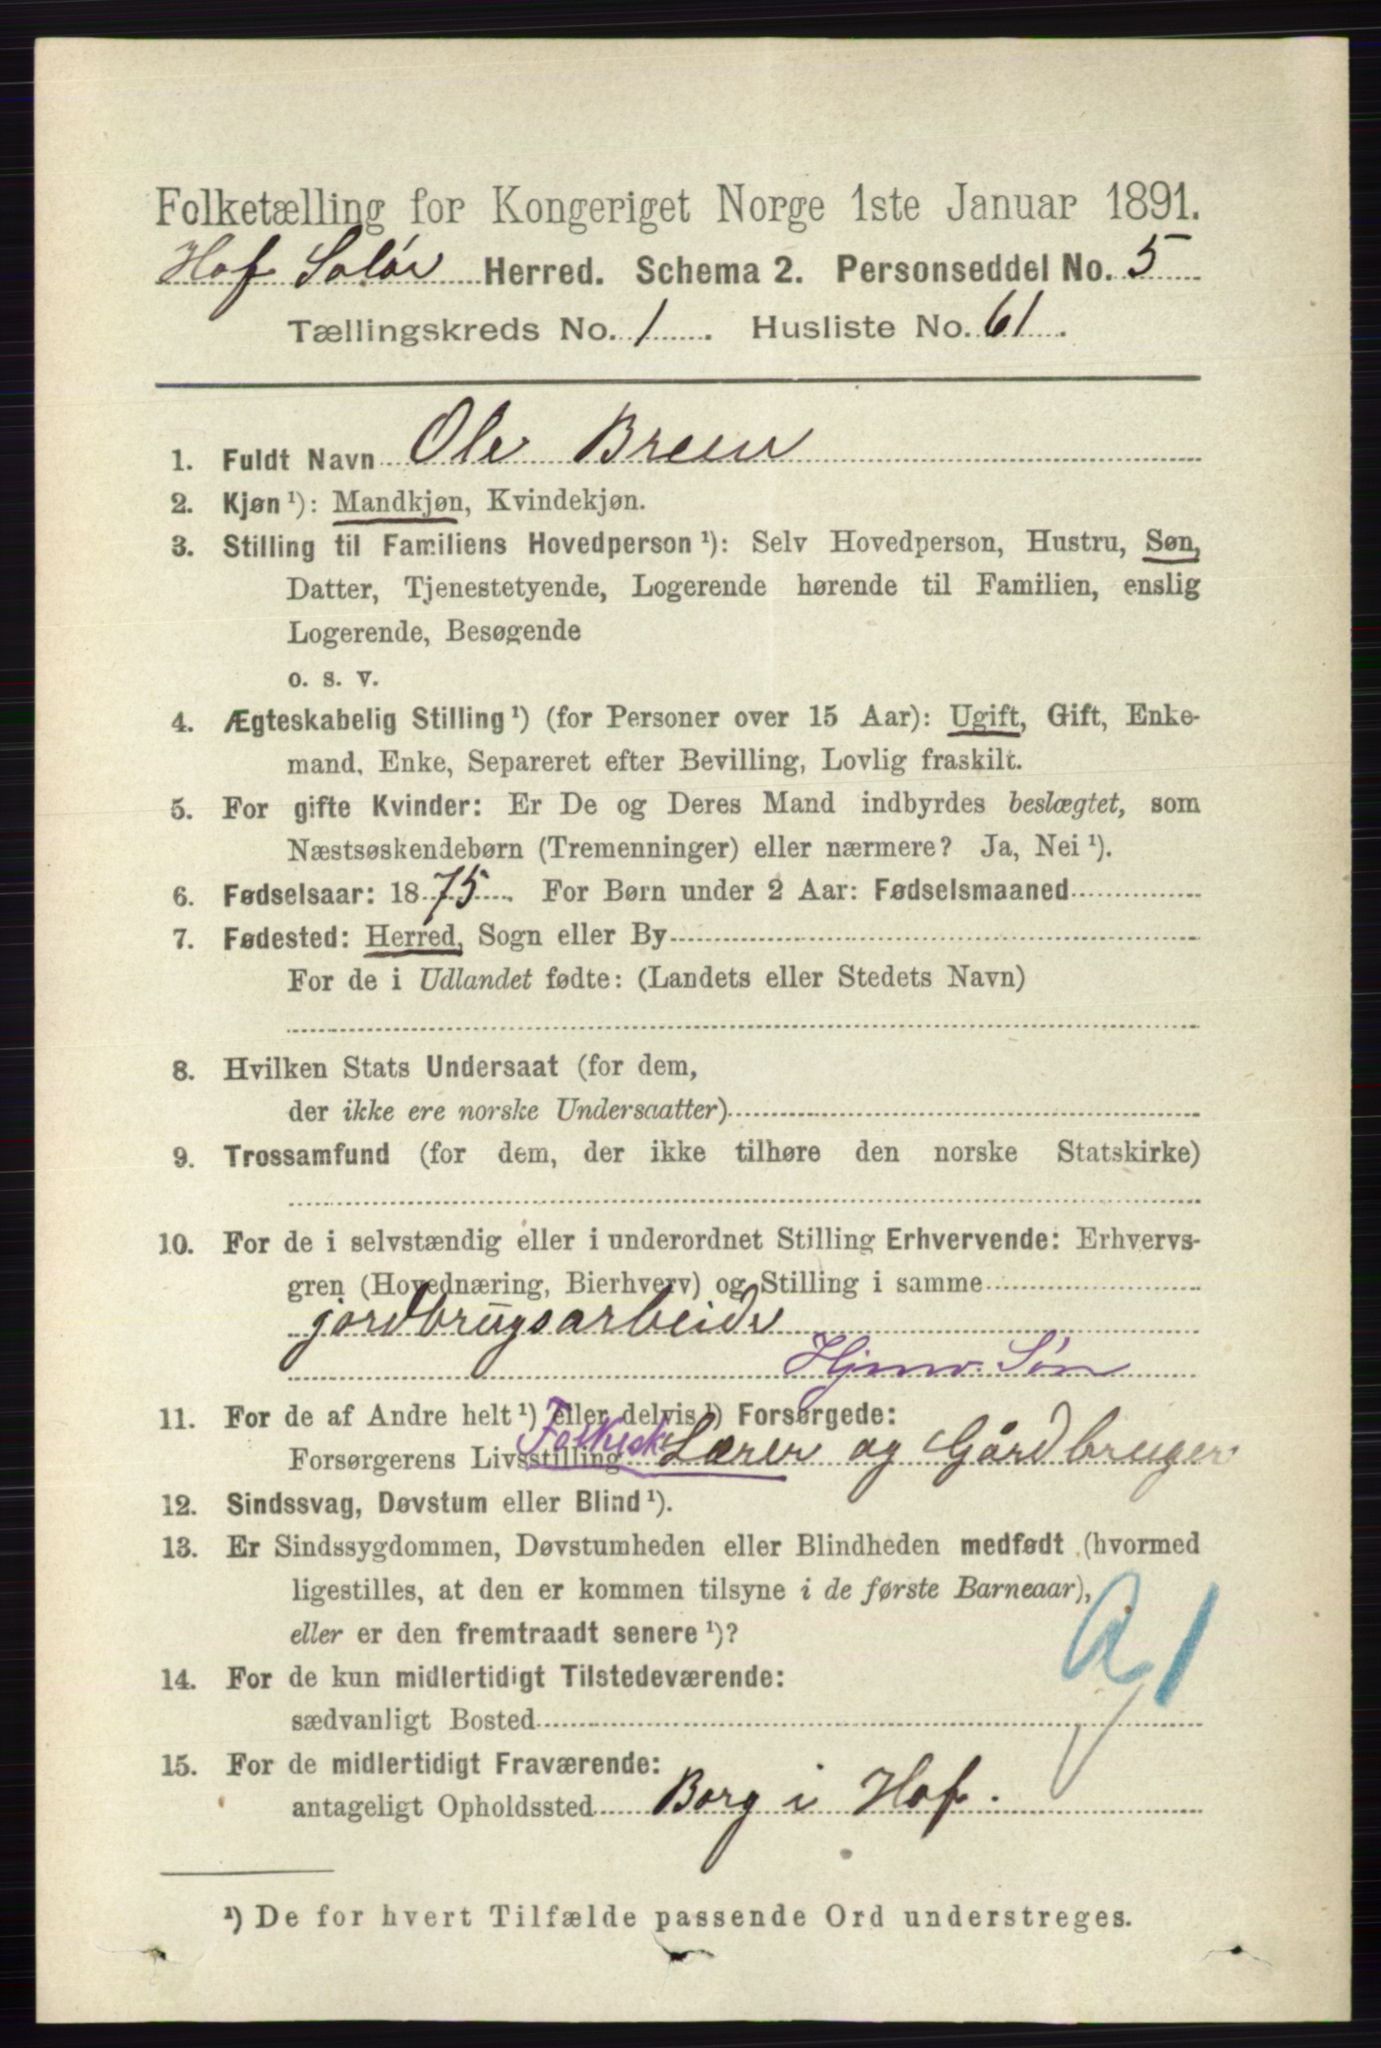 Folketælling for Kongeriget Norge 1ste Januar 1891.
Hof Solør Herred. Schema 2. Personseddel No. 5
Tællingskreds No. 1. Husliste No. 61.
1. Fuldt Navn Ole Breen
2. Kjøn ¹): Mandkjøn, Kvindekjøn.
3. Stilling til Familiens Hovedperson ¹): Selv Hovedperson, Hustru, Søn,
Datter, Tjenestetyende, Logerende hørende til Familien, enslig
Logerende, Besøgende
o. s. v.
4. Ægteskabelig Stilling ¹) (for Personer over 15 Aar): Ugift, Gift, Enke-
mand, Enke, Separeret efter Bevilling, Lovlig fraskilt.
5. For gifte Kvinder: Er De og Deres Mand indbyrdes beslægtet, som
Næstsøskendebørn (Tremenninger) eller nærmere? Ja, Nei ¹).
6. Fødselsaar: 1875. For Børn under 2 Aar: Fødselsmaaned
7. Fødested: Herred, Sogn eller By
For de i Udlandet fødte: (Landets eller Stedets Navn)
8. Hvilken Stats Undersaat (for dem,
der ikke ere norske Undersaatter)
9. Trossamfund (for dem, der ikke tilhøre den norske Statskirke)
10. For de i selvstændig eller i underordnet Stilling Erhvervende: Erhvervs-
gren (Hovednæring, Bierhverv) og Stilling i samme
jordbrugsarbeide
Hjmv. Søn
11. For de af Andre helt ¹) eller delvis ¹) Forsørgede:
Forsørgerens Livsstilling Folkesk Lærer og Gårdbruger
12. Sindssvag, Døvstum eller Blind ¹).
13. Er Sindssygdommen, Døvstumheden eller Blindheden medfødt (hvormed
ligestilles, at den er kommen tilsyne i de første Barneaar),
eller er den fremtraadt senere ¹)?
14. For de kun midlertidigt Tilstedeværende:
sædvanligt Bosted
15. For de midlertidigt Fraværende:
antageligt Opholdssted Borg i Hof.
¹) De for hvert Tilfælde passende Ord understreges.